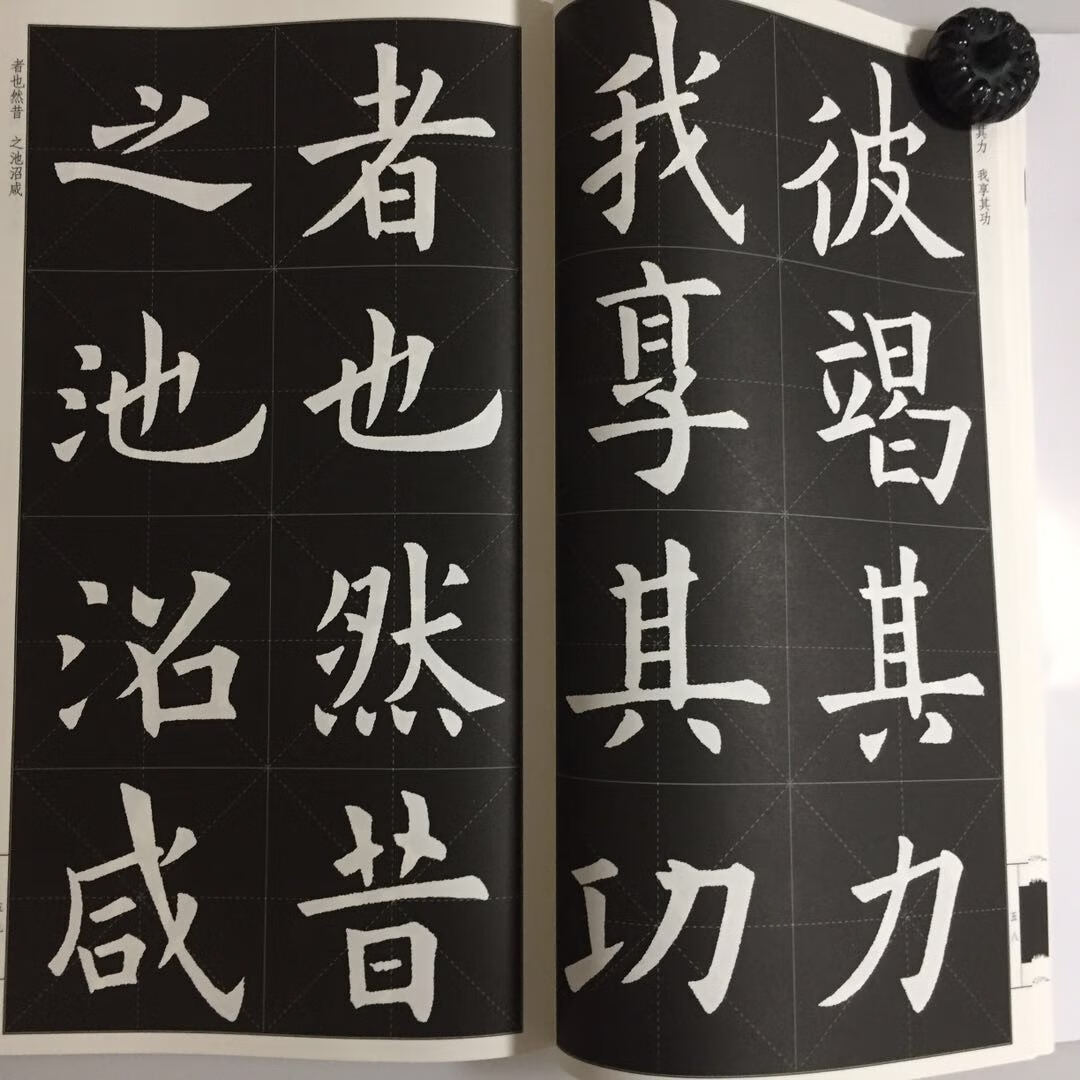 彼竭其力
我享其功
者也然昔
之池沼咸
其力 我享其功
者也然昔 之池沼咸
五八